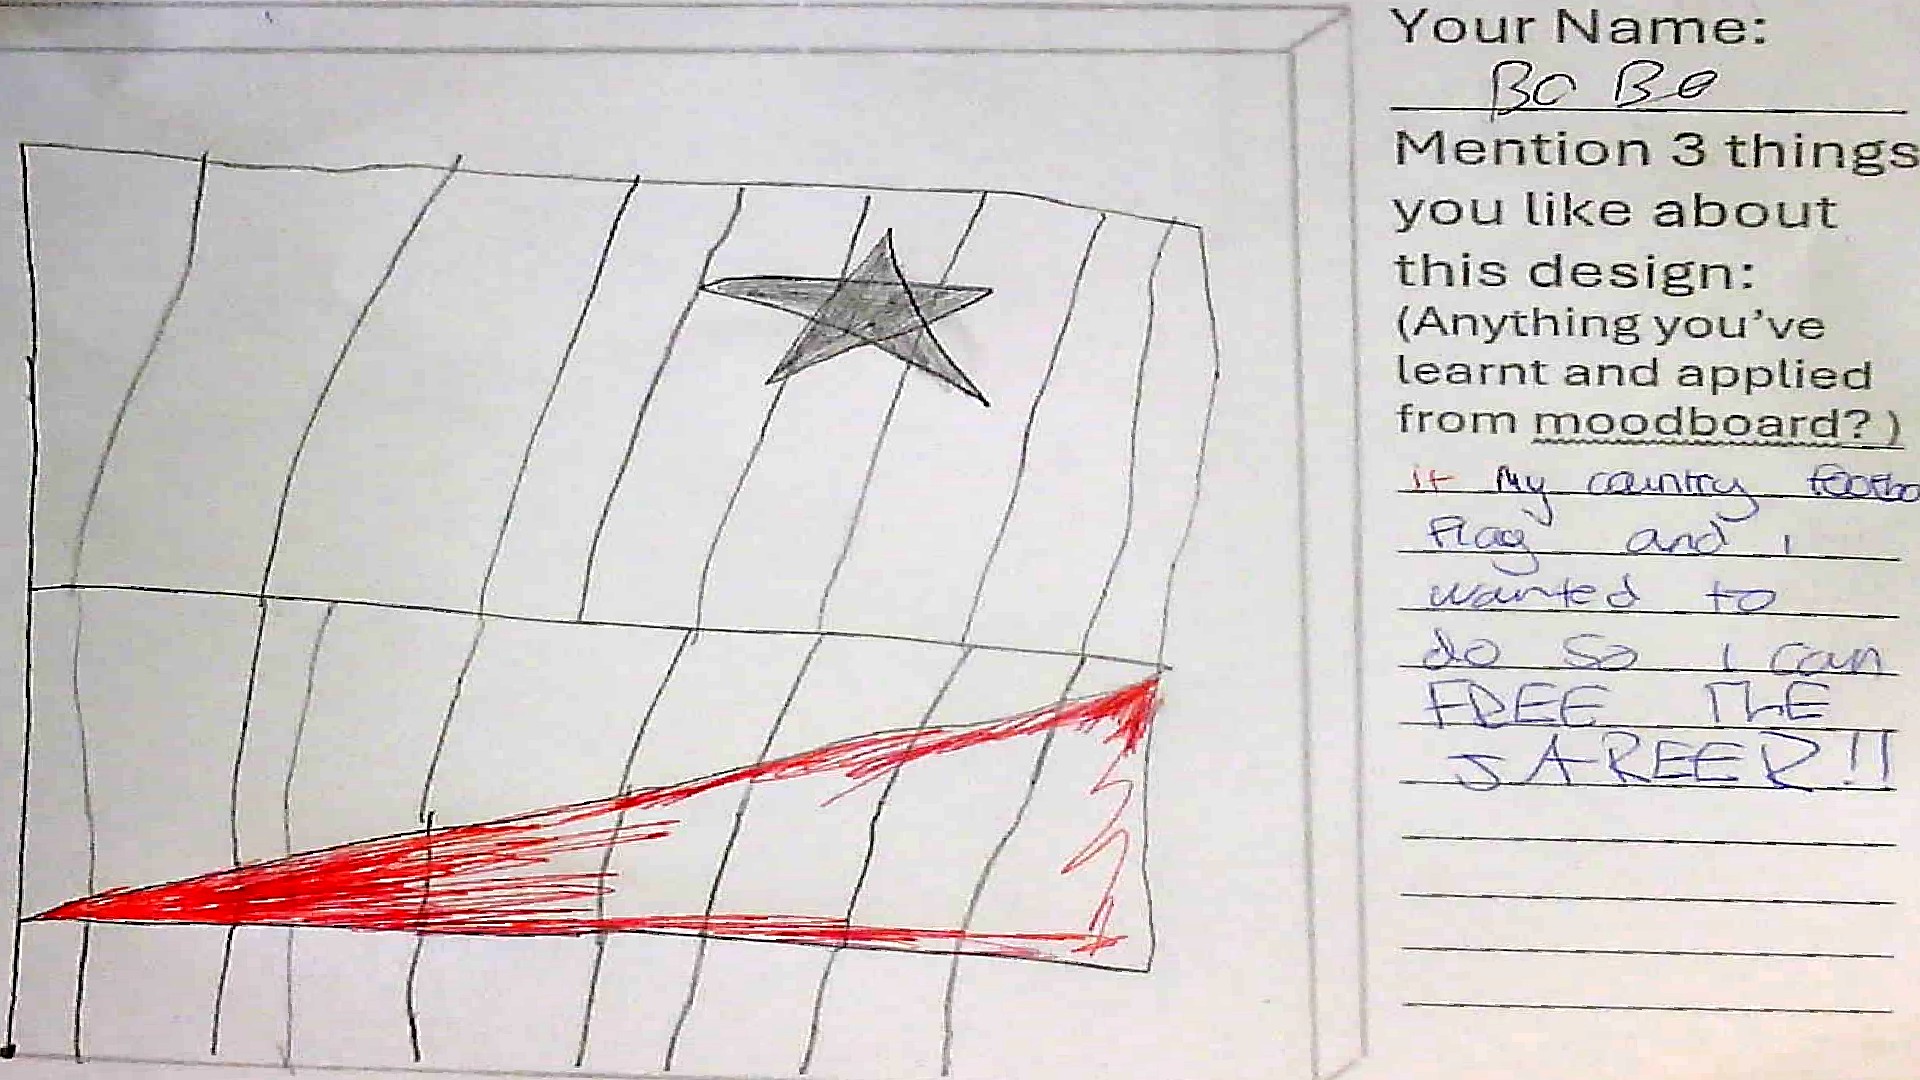 Your Name:
Bo Bo
Mention 3 things
you like about
this design:
(Anything you've
learnt and applied
from moodboard? )
it My country
Flag and i
wanted to
do so i can
FREE THE
SAREER!!